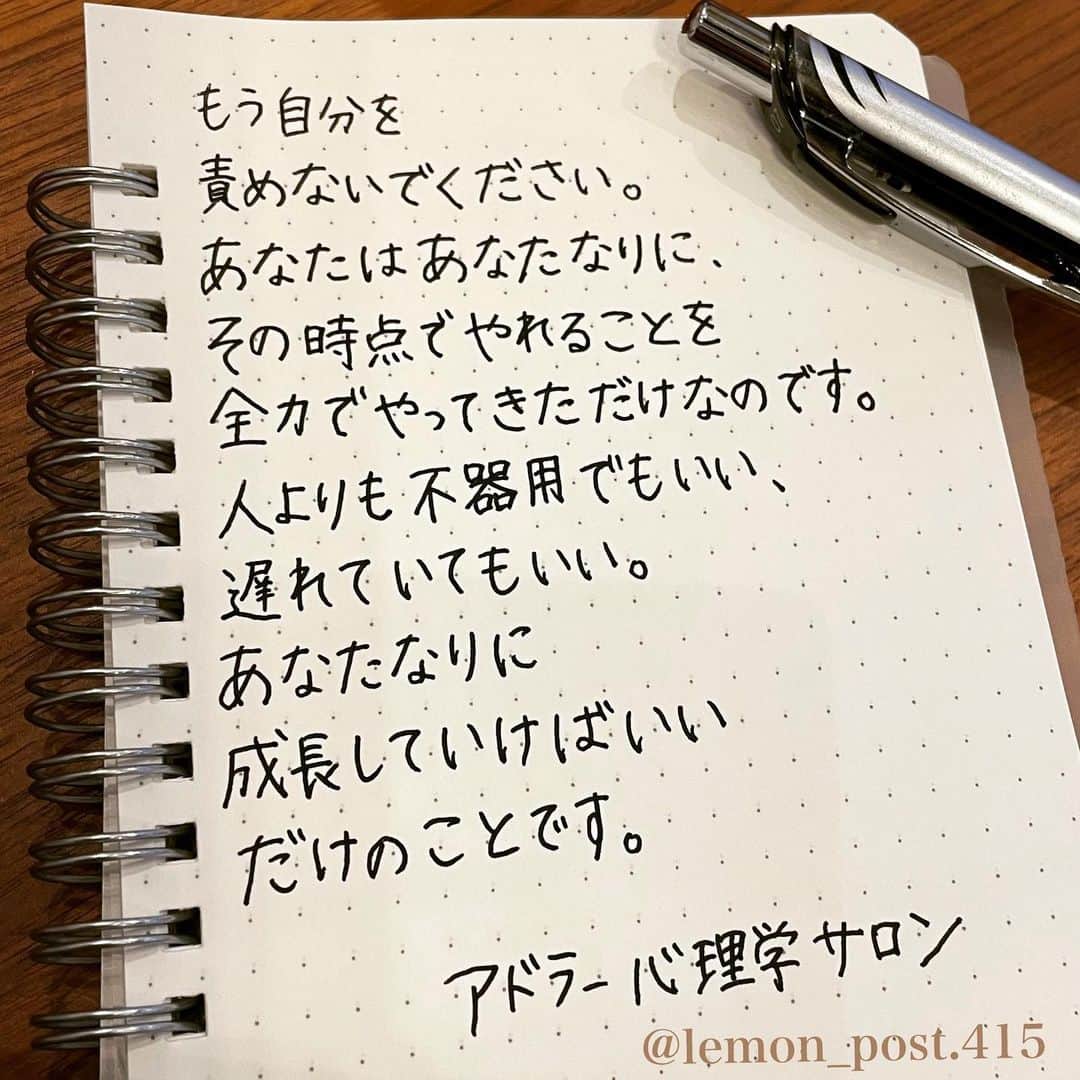 もう自分を
責めないでください。
あなたはあなたなりに、
その時点でやれることを
全力でやってきただけなのです。
人よりも不器用でもいい、
遅れていてもいい。
あなたなりに
成長していけばいい
だけのことです。
アドラー心理学サロン
@lemon_post.415